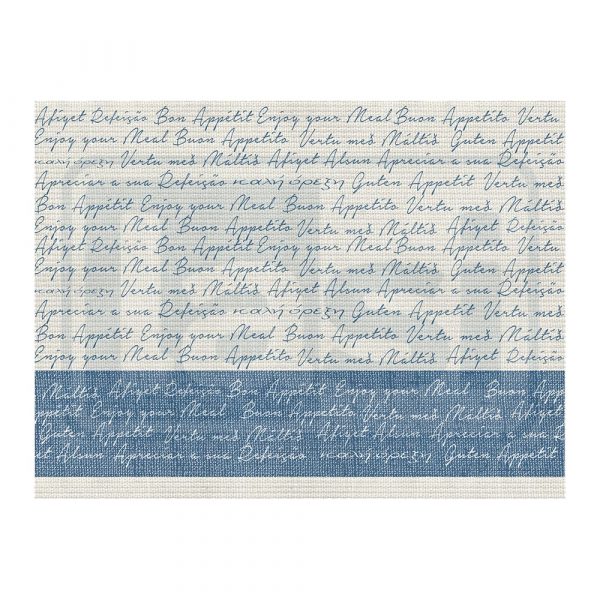 Afiyet Refeição Bon Appétit Enjoy your Meal Buon Appetito Vertu
Enjoy your Meal Buon Appetito Vertu með Máltíð Guten Appetit
καλή όρεξη Vertu með Máltíð Afiyet Alsun Apreciar a sua Refeição
Apreciar a sua Refeição καλή όρεξη Guten Appetit Vertu með
Bon Appétit Enjoy your Meal Buon Appetito Vertu með Máltíð
Enjoy your Meal Buon Appetito Vertu með Máltíð Afiyet Refeição
Afiyet Refeição Bon Appétit Enjoy your Meal Buon Appetito Vertu
Enjoy your Meal Buon Appetito Vertu með Máltíð Guten Appetit
καλή όρεξη Vertu með Máltíð Afiyet Alsun Apreciar a sua Refeição
Apreciar a sua Refeição καλή όρεξη Guten Appetit Vertu með
Bon Appétit Enjoy your Meal Buon Appetito Vertu með Máltíð
Enjoy your Meal Buon Appetito Vertu með Máltíð Afiyet Refeição
Máltíð Afiyet Refeição Bon Appétit Enjoy your Meal Buon
petit Enjoy your Meal Buon Appetito Vertu með Máltíð
Guten Appetit Vertu með Máltíð Afiyet Alsun Apreciar a sua R
et Alsun Apreciar a sua Refeição καλή όρεξη Guten Appetit